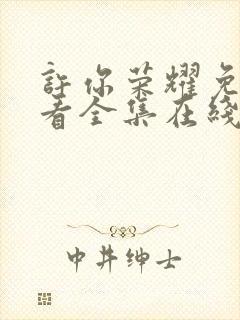 许你荣耀免
看全集在线
中井绅士